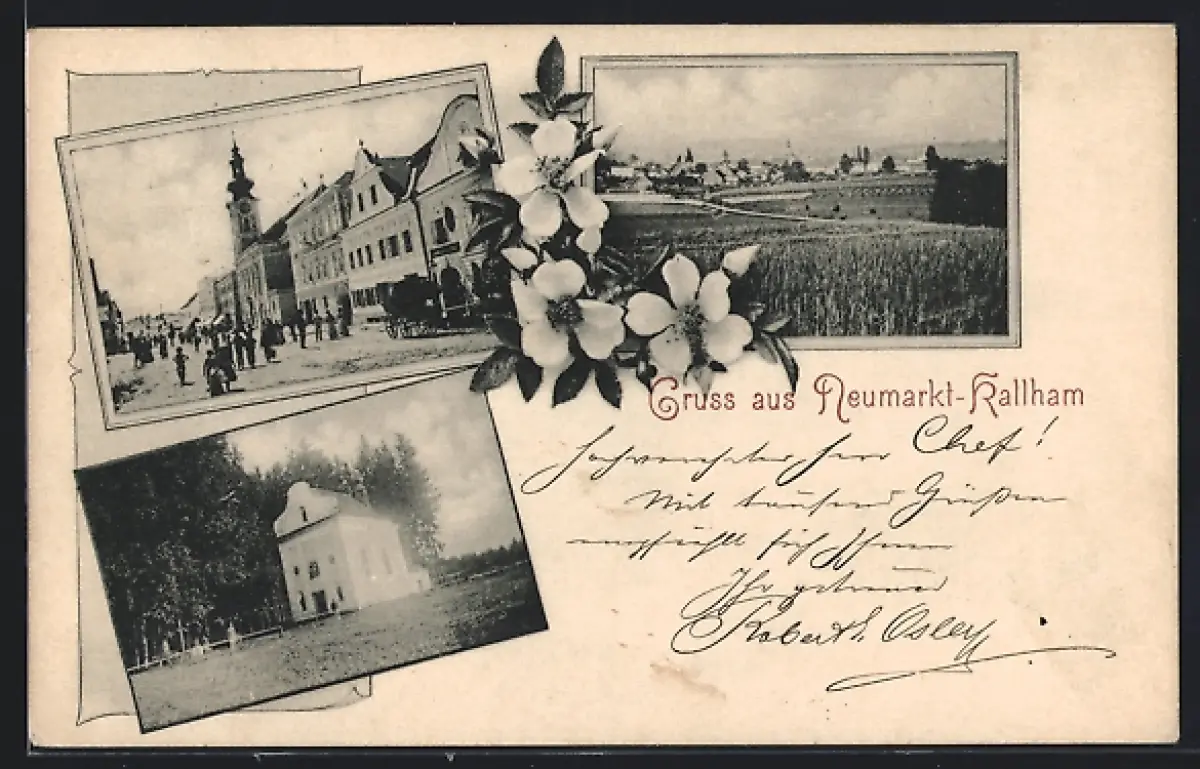 Gruss aus Neumarkt-Kallham
Hochverehrter Herr Chef!
Mit tausend Grüßen
empfiehlt sich Ihnen
Ihr getreuer
Robert Osley